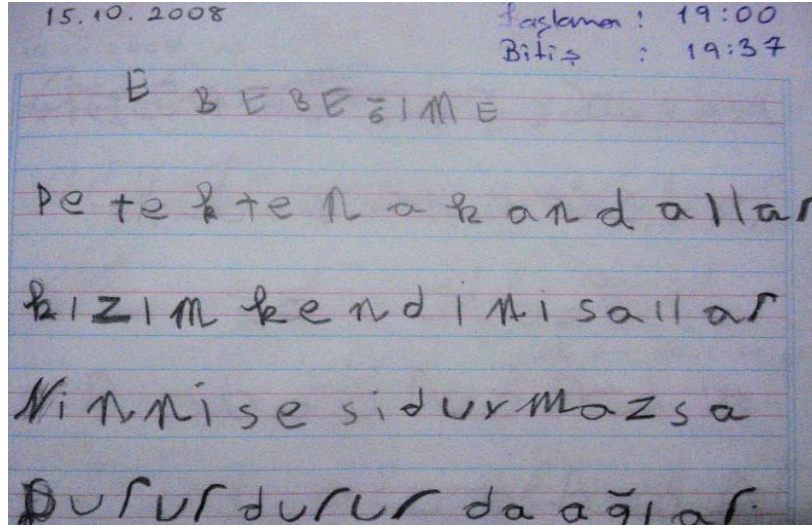 15.10.2008 Başlama : 19:00
Bitiş : 19:37
E BEBEĞIME
Petekten akandallar
kızım kendinisallar
Ninnisesidurmazsa
Dururdururdaağlar.